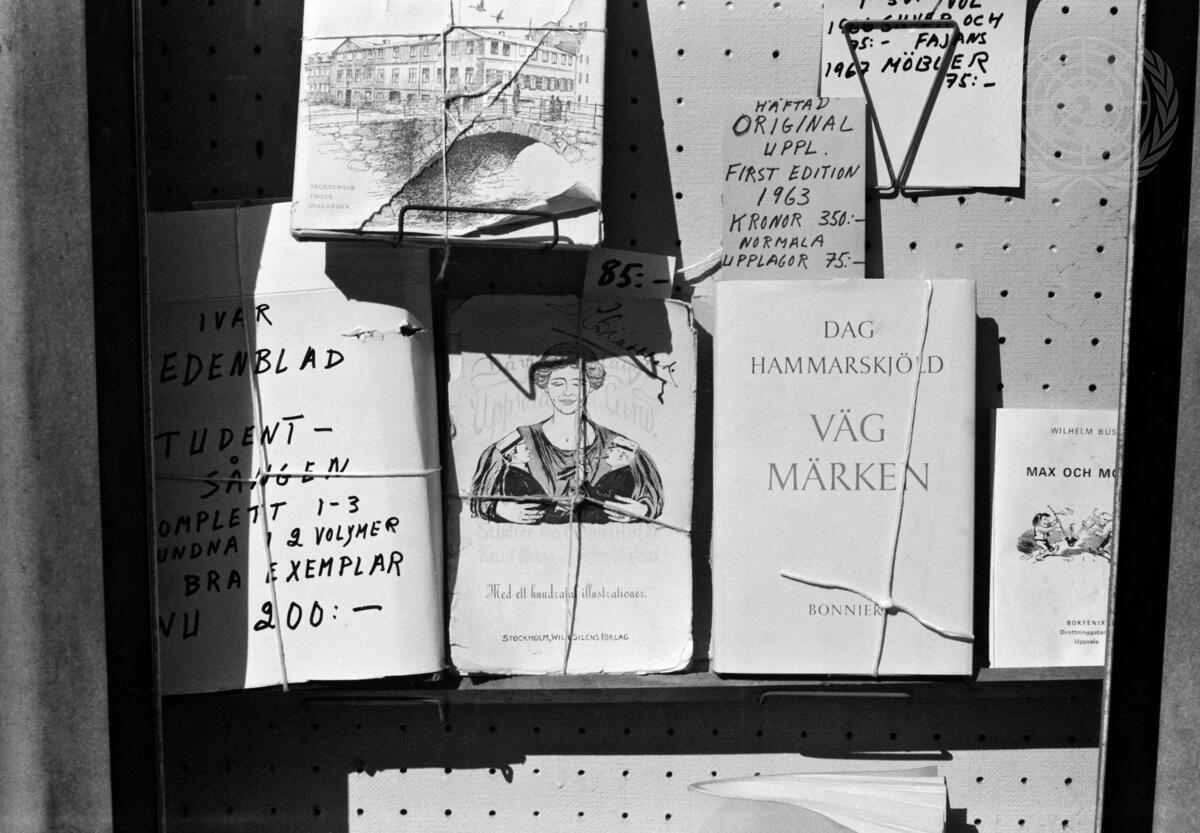 1966 SILVER OCH
75:- FAJANS
1967 MÖBLER
75:-
HÄFTAD
ORIGINAL
UPPL.
FIRST EDITION
1963
KRONOR 350:-
NORMALA
UPPLAGOR 75:-
TECKNINGAR
YNGVE
SVALANDER
85:-
IVAR
EDENBLAD
TUDENT-
SÅNGEN
OMPLETT 1-3
UNDNA I 2 VOLYMER
BRA EXEMPLAR
NU 200:-
Uppsala och Lund.
Med ett hundratal illustrationer.
STOCKHOLM, WILH. SILÉNS FÖRLAG
DAG
HAMMARSKJÖLD
VÄG
MÄRKEN
BONNIER
WILHELM BUS
MAX OCH MO
BOKFENIX
Drottninggatan
Uppsala